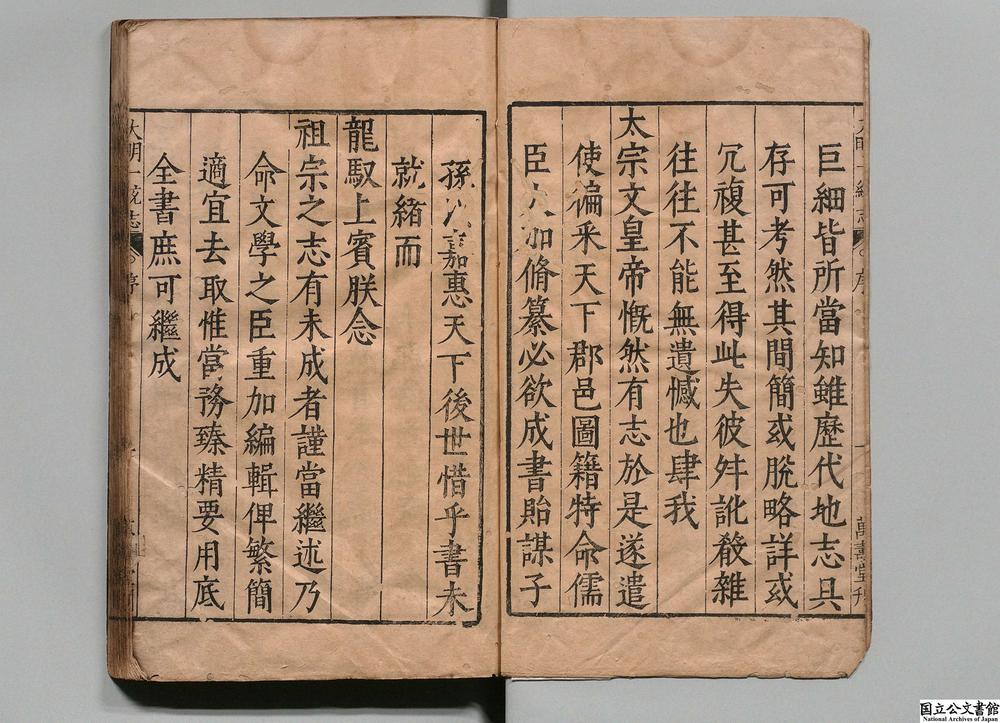 巨細皆所當知雖歷代地志具
存可考然其間簡或脫略詳或
冗複甚至得此失彼舛訛殽雜
往往不能無遺憾也肆我
太宗文皇帝慨然有志於是遂遣
使徧采天下郡邑圖籍特命儒
臣大加脩纂必欲成書貽謀子
孫以嘉惠天下後世惜乎書未
就緒而
龍馭上賓朕念
祖宗之志有未成者謹當繼述乃
命文學之臣重加編輯俾繁簡
適宜去取惟當務臻精要用底
全書庶可繼成
大明一統志
序
萬壽堂刊
大明一統志
序
国立公文書館
National Archives of Japan